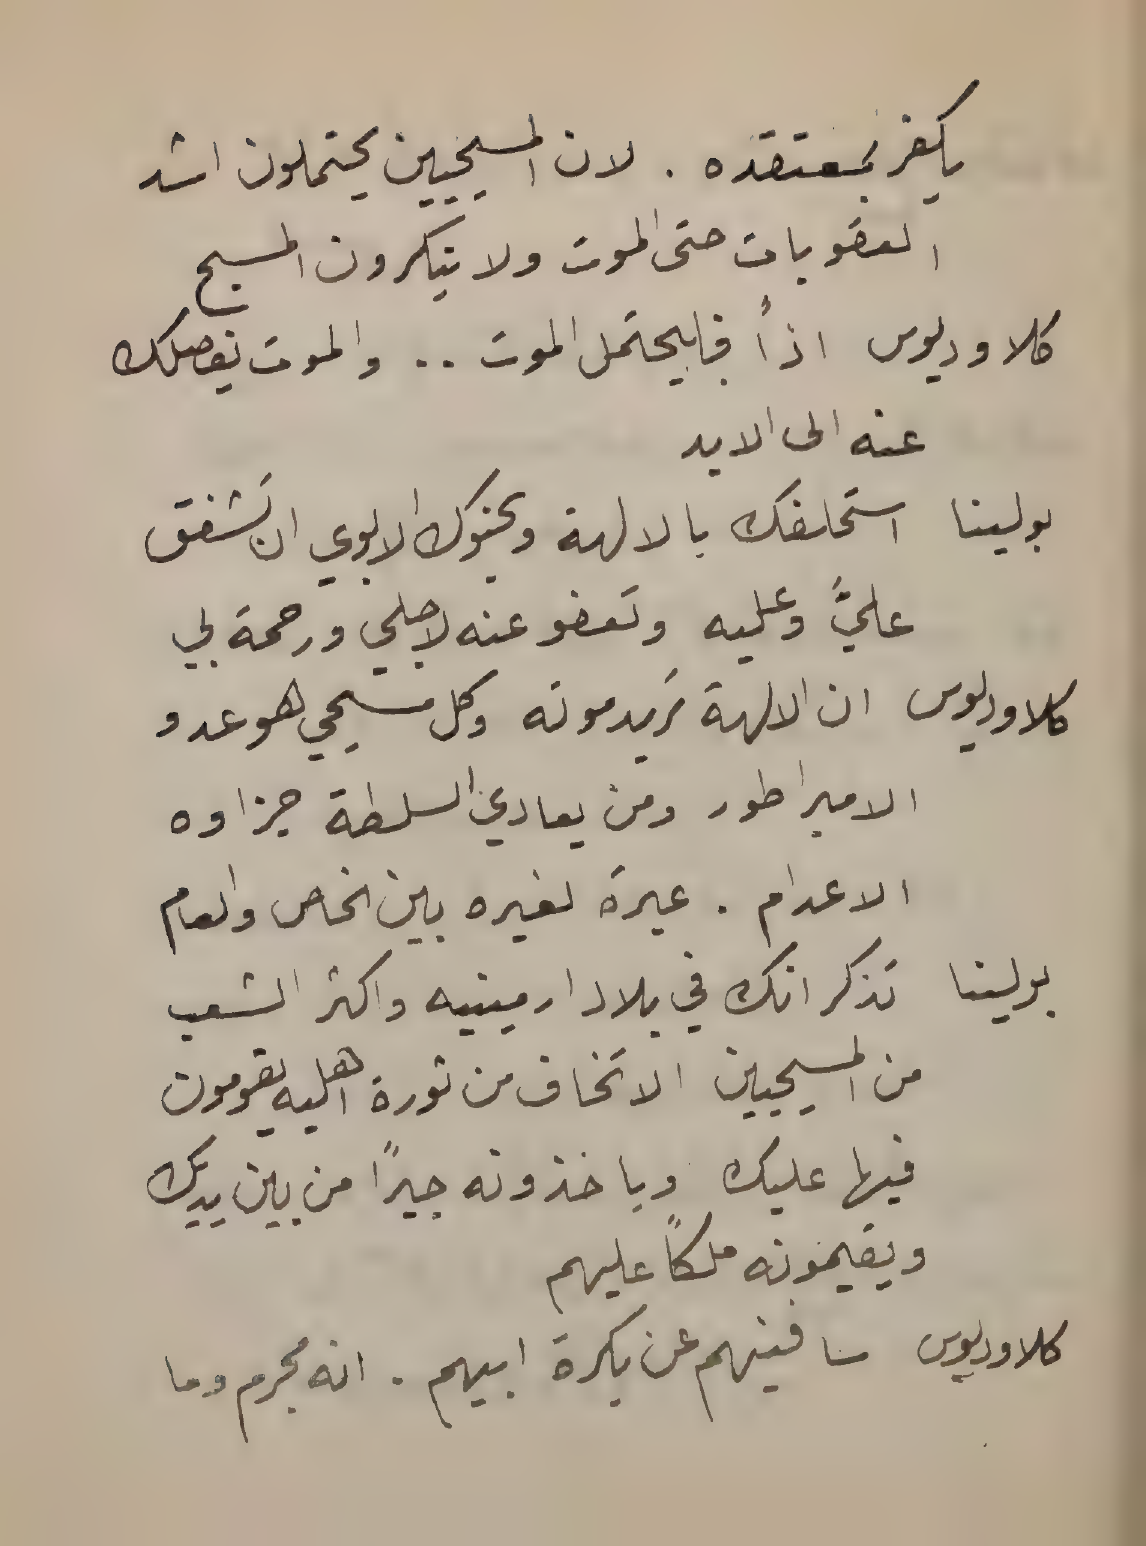 يكفر بمعتقده . لان المسيحيين يحتملون اشد
العقوبات حتى الموت ولا ينكرون المسيح
كلاوديوس اذاً فليحتمل الموت .. والموت يفصلك
عنه الى الابد
بولينا استحلفك بالالهة وبحنوك الابوي ان تشفق
عليَّ وعليه وتعفو عنه لاجلي ورحمة لي
كلاوديوس ان الالهة تريد موته وكل مسيحي هو عدو
الامبراطور ومن يعادي السلطة جزاوه
الاعدام . عبرة لغيره بين الخاص والعام
بولينا تذكر انك في بلاد ارمينيه واكثر الشعب
من المسيحيين الا تخاف من ثورة اهليه يقومون
فيها عليك وياخذونه جبرًا من بين يديك
ويقيمونه ملكاً عليهم
كلاوديوس سافنيهم عن بكرة ابيهم . انه مجرم وما